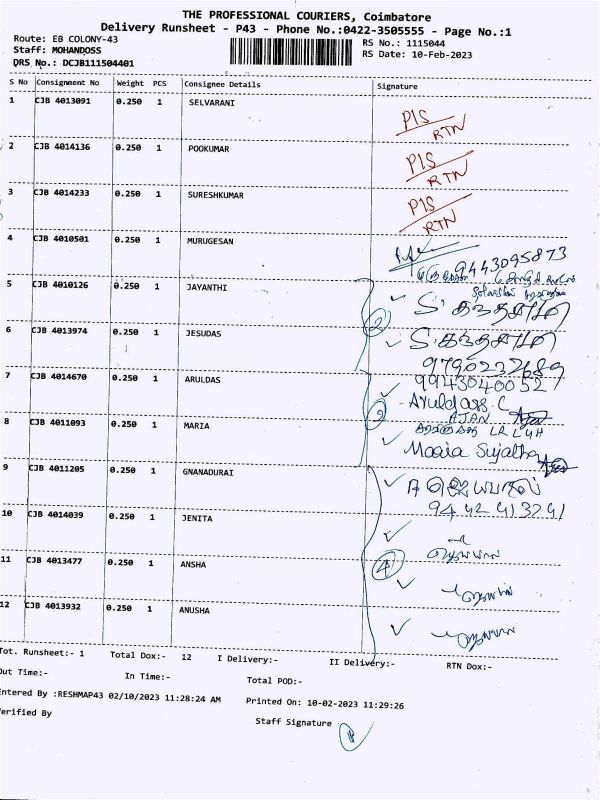 THE PROFESSIONAL COURIERS, Coimbatore
Delivery Runsheet - P43 - Phone No.:0422-3505555 - Page No.:1
Route: EB COLONY-43
Staff: MOHANDOSS
DRS No.: DCJB111504401
RS No.: 1115044
RS Date: 10-Feb-2023
S No Consignment No Weight PCS Consignee Details Signature
1 CJB 4013091 0.250 1 SELVARANI PIS RTN
2 CJB 4014136 0.250 1 POOKUMAR PIS RTN
3 CJB 4014233 0.250 1 SURESHKUMAR PIS RTN
4 CJB 4010501 0.250 1 MURUGESAN
9443095873
5 CJB 4010126 0.250 1 JAYANTHI
2
6 CJB 4013974 0.250 1 JESUDAS
9790232689
7 CJB 4014670 0.250 1 ARULDAS 9943040052
Aruldass. C
8 CJB 4011093 0.250 1 MARIA
Maria Sujatha
9 CJB 4011205 0.250 1 GNANADURAI
9442413241
10 CJB 4014039 0.250 1 JENITA
11 CJB 4013477 0.250 1 ANSHA
4
12 CJB 4013932 0.250 1 ANUSHA
Tot. Runsheet:- 1 Total Dox:- 12 I Delivery:- II Delivery:- RTN Dox:-
Out Time:- In Time:- Total POD:-
Entered By :RESHMAP43 02/10/2023 11:28:24 AM Printed On: 10-02-2023 11:29:26
Verified By
Staff Signature